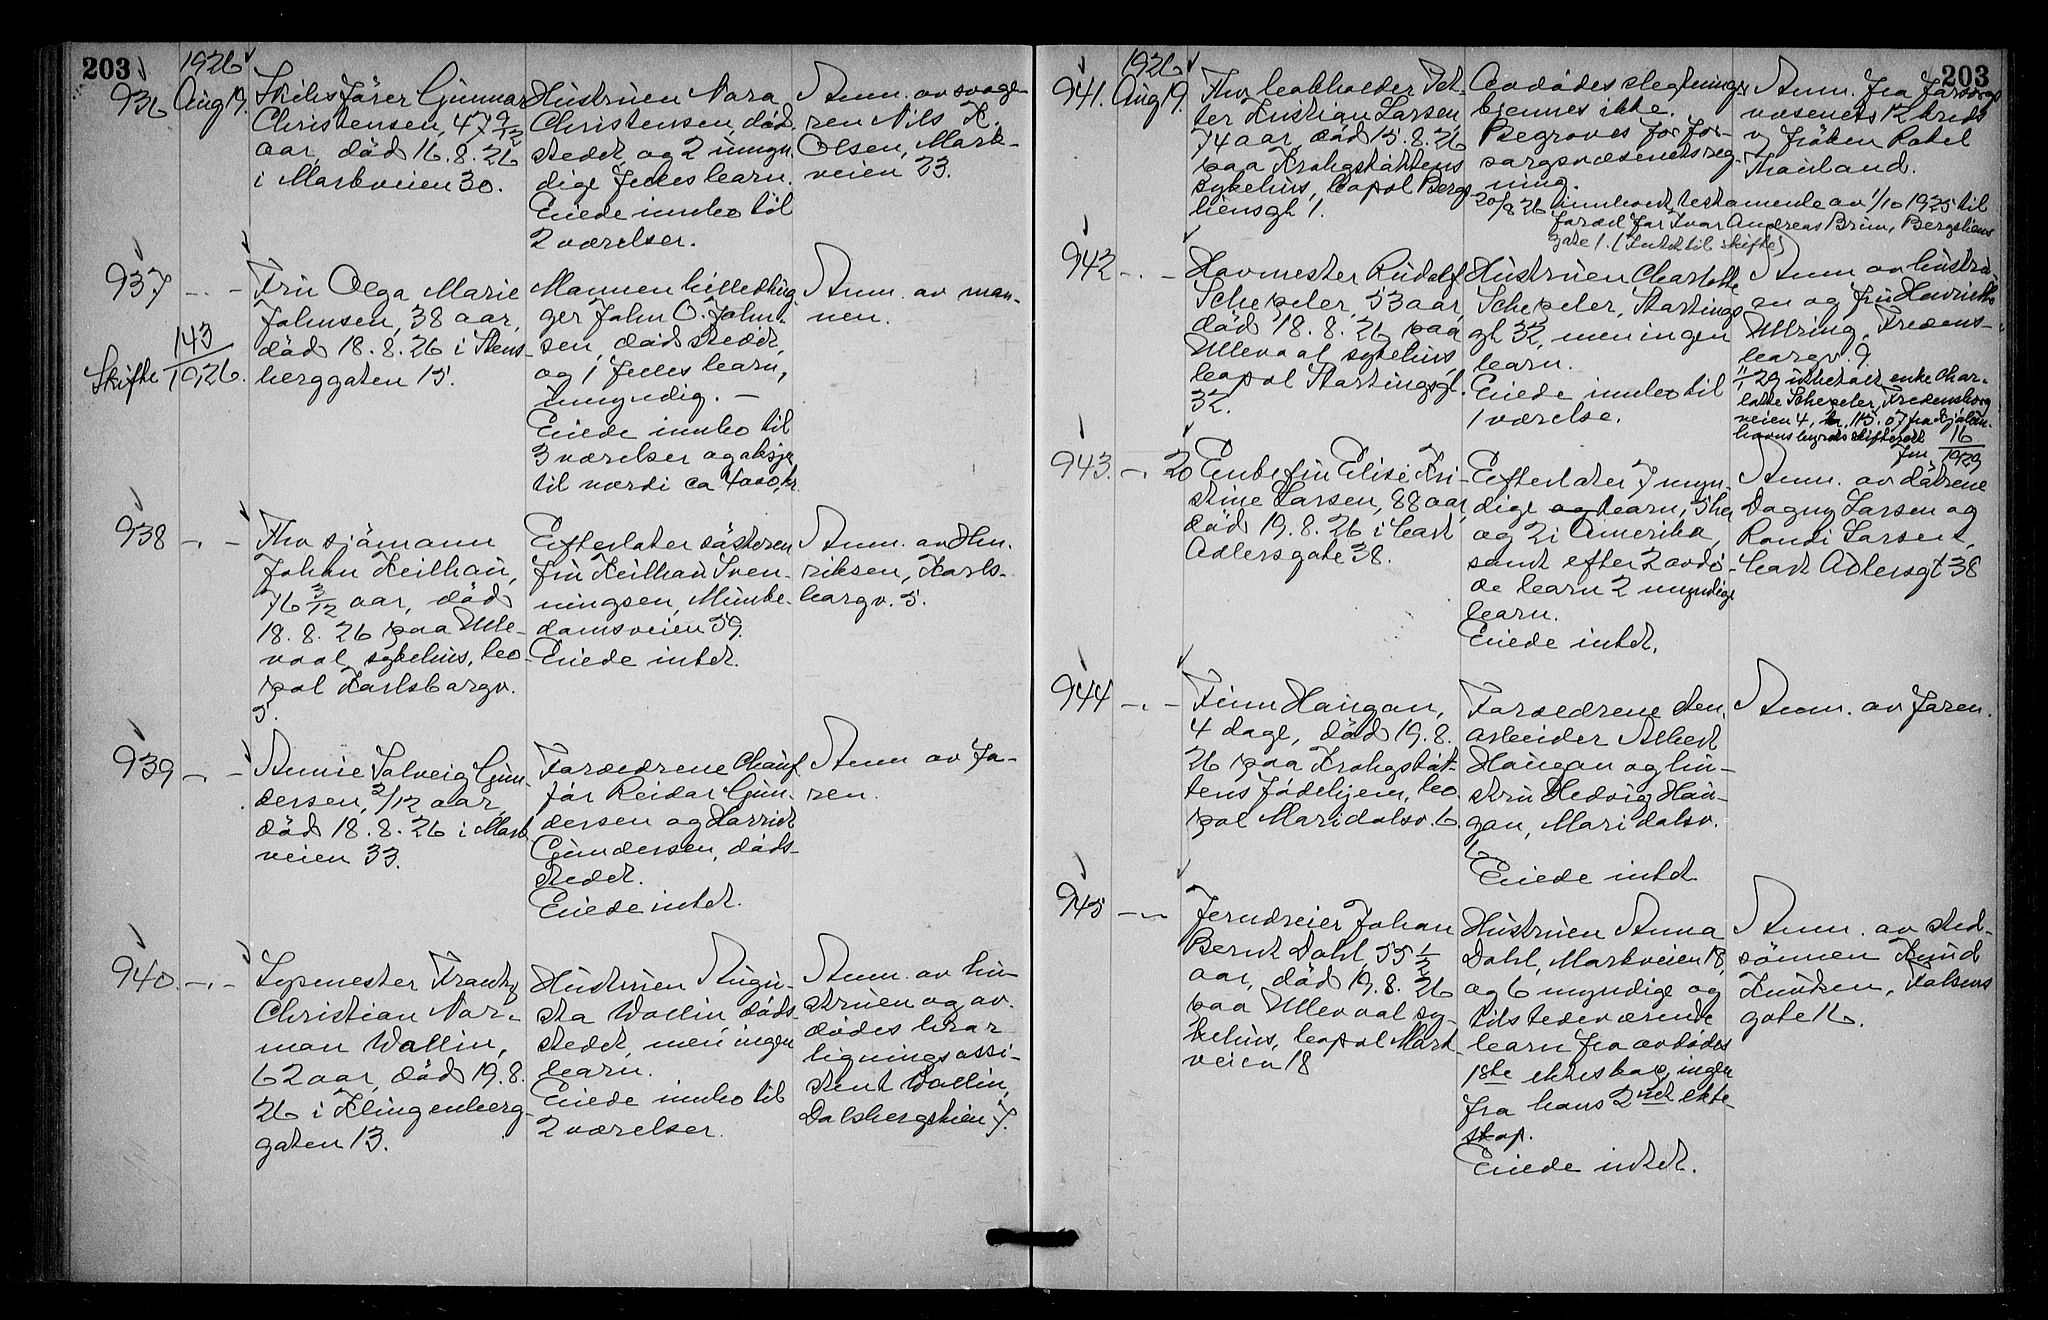 203
1926
936 Aug 19.
Skibsfører Gunnar
Christensen, 47 9/12
aar, død 16.8.26
i Markveien 30.
Hustruen Nara
Christensen, død-
stedet, og 2 umyn-
dige fælles barn.
Eiede innbo til
2 værelser.
Anm. av svoge-
ren Nils K.
Olsen, Mark-
veien 23.
937 -.-
Skifte 143/1926.
Fru Olga Marie
Johnsen, 38 aar,
død 18.8.26 i Stens-
berggaten 15.
Mannen billedhug-
ger John O. John-
sen, dødstedet,
og 1 fælles barn,
umyndig. -
Eiede innbo til
3 værelser og aksjer
til værdi ca 4000 kr.
Anm. av man-
nen.
938 -.-
Fhv sjømann
Johan Keilhau,
76 3/12 aar, død
18.8.26 paa Ulle-
vaal sykehus, bo-
pæl Karlsborgv.
5.
Efterlater søsteren
fru Keilhau Sven-
ningsen, Munke-
damsveien 59.
Eiede intet.
Anm. av Hen-
riksen, Karls-
borgv. 5.
939 -.-
Annie Solveig Gun-
dersen, 2/12 aar,
død 18.8.26 i Mark-
veien 33.
Forældrene Chauf-
før Reidar Gun-
dersen og Harriet
Gundersen, døds-
stedet.
Eiede intet.
Anm av fa-
ren.
940. -.-
Sepmester Frantz
Christian Nor-
man Wallin,
62 aar, død 19.8.
26 i Klingenberg-
gaten 13.
Hustruen Augu-
sta Wallin døds-
stedet, men ingen
barn.
Eiede innbo til
2 værelser.
Anm. av hu-
struen og av-
dødes bror
ligningsassi-
stent Wallin,
Dalsbergstien 7.
203
1926
941. Aug 19.
Fhv bokholder Pet-
ter Kristian Larsen
74 aar, død 15.8.26
paa Krohgstøttens
sykehus, bopæl Bergs-
liensgt 1.
Avdødes slegtninger
kjennes ikke.
Begraves for for-
sorgsvæsenets reg-
ning.
Anm. fra Forsorgs-
væsenets 12 kreds
v/ frøken Rakel
Frøiland.
20/8 26 innlevert testamente av 1/10 1925 til
fordel for Ivar Andreas Brun, Bergsliens
gate 1. (Sendt til skifte)
942 -.-
Havnmester Rudolf
Schepeler, 53 aar,
død 18.8.26 paa
Ullevaal sykehus,
bopæl Stortingsgt.
32.
Hustruen Charlotte
Schepeler, Stortings-
gt 32, men ingen
barn.
Eiede innbo til
1 værelse.
Anm av hustru-
en og fru Henriette
Ullring, Fredens-
borgv. 9.
11/1 29 utbetalt enke Char-
lotte Schepeler, Fredensborg-
veien 4, kr. 115.07 fra Kjøben-
havns byrets skifteret
fre 16/1929
943. -.- 20
Enkefru Elise Kri-
stine Larsen, 88 aar,
død 19.8.26 i Cort
Adlersgate 38.
Efterlater 7 myn-
dige og barn, 5 her
og 2 i Amerika,
samt efter 2 avdø-
de barn 2 umyndige
barn.
Eiede intet.
Anm. av døtrene
Dagny Larsen og
Randi Larsen,
Cort Adlersgt 38
944 -.-
Finn Haugan,
4 dage, død 19.8.
26 paa Krohgstøt-
tens fødehjem, bo-
pæl Maridalsv. 6.
Forældrene sten-
arbeider Albert
Haugan og hu-
stru Hedvig Hau-
gan, Maridalsv.
6.
Eiede intet
Anm. av faren.
945 -.-
Jerndreier Johan
Bernt Dahl, 55 1/2
aar, død 19.8.26
paa Ullevaal sy-
kehus, bopæl Mark-
veien 18
Hustruen Anna
Dahl, Markveien 18,
og 6 myndige og
tilstedeværende
barn fra avdødes
1ste ekteskap, ingen
fra hans 2net ekte-
skap.
Eiede intet.
Anm. av sted-
sønnen Knud
Knudsen, Falsens
gate 16.